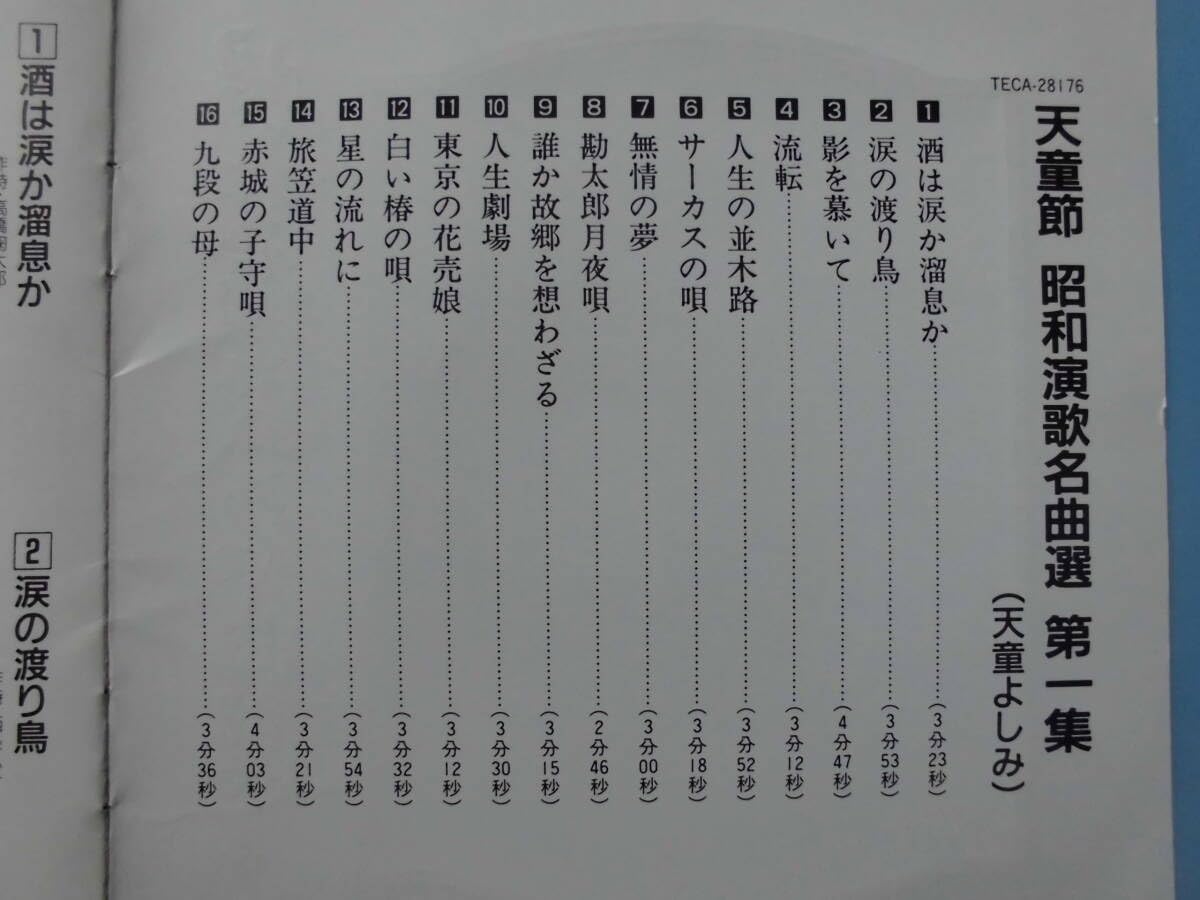 TECA-28176
天童節 昭和演歌名曲選 第一集
(天童よしみ)
1 酒は涙か溜息か……(3分23秒)
2 涙の渡り鳥……(3分53秒)
3 影を慕いて……(4分47秒)
4 流転……(3分12秒)
5 人生の並木路……(3分52秒)
6 サーカスの唄……(3分18秒)
7 無情の夢……(3分00秒)
8 勘太郎月夜唄……(2分46秒)
9 誰か故郷を想わざる……(3分15秒)
10 人生劇場……(3分30秒)
11 東京の花売娘……(3分12秒)
12 白い椿の唄……(3分32秒)
13 星の流れに……(3分54秒)
14 旅笠道中……(3分21秒)
15 赤城の子守唄……(4分03秒)
16 九段の母……(3分36秒)
1 酒は涙か溜息か
2 涙の渡り鳥